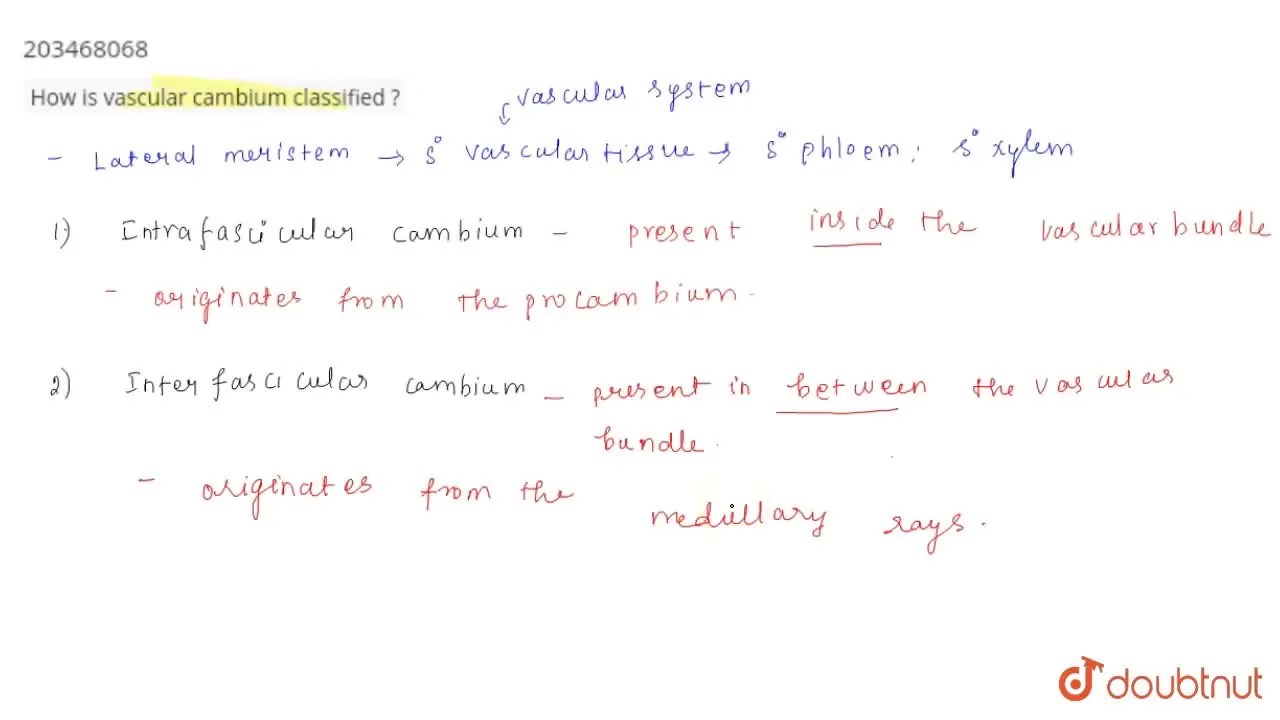 203468068
How is vascular cambium classified ?
vascular system
- Lateral meristem → s° vascular tissue → s° phloem, s° xylem
1) Intrafascicular cambium - present inside the vascular bundle
- originates from the procambium.
2) Interfascicular cambium - present in between the vascular
bundle.
- originates from the medullary rays.
doubtnut